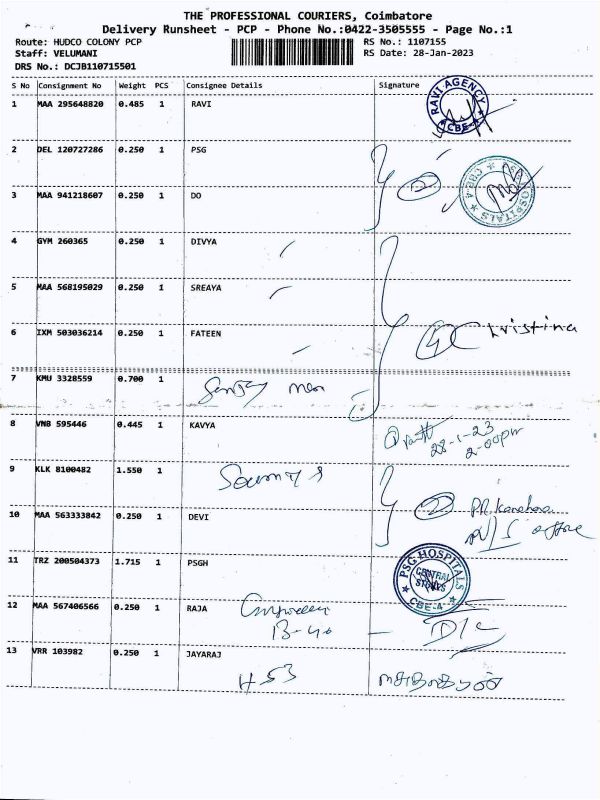 THE PROFESSIONAL COURIERS, Coimbatore
Delivery Runsheet - PCP - Phone No.:0422-3505555 - Page No.:1
Route: HUDCO COLONY PCP RS No.: 1107155
Staff: VELUMANI RS Date: 28-Jan-2023
DRS No.: DCJB110715501
S No Consignment No Weight PCS Consignee Details Signature
1 MAA 295648820 0.485 1 RAVI
RAVI AGENCY
CBE-4
2 DEL 120727286 0.250 1 PSG
2
PSG HOSPITALS
CBE-4
3 MAA 941218607 0.250 1 DO
4 GYM 260365 0.250 1 DIVYA
5 MAA 568195029 0.250 1 SREAYA
6 IXM 503036214 0.250 1 FATEEN
Christina
7 KMU 3328559 0.700 1
8 VNB 595446 0.445 1 KAVYA
28-1-23
2-00pm
9 KLK 8100482 1.550 1
2
10 MAA 563333842 0.250 1 DEVI
11 TRZ 200504373 1.715 1 PSGH
PSG HOSPITALS
CENTRAL STORES
CBE-4
12 MAA 567406566 0.250 1 RAJA
B-40
D/C
13 VRR 103982 0.250 1 JAYARAJ
H 53